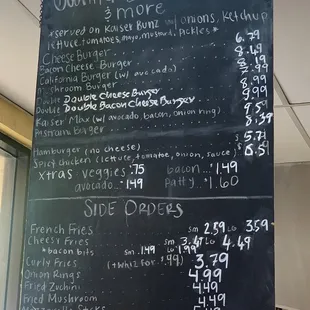 & more
*served on Kaiser Bunz w/ onions, Ketchup
lettuce, tomatoes, mayo, mustard, Pickles *
Cheese Burger 6.79
Bacon Cheese Burger 8.49
California Burger (w/ avocado) 8.19
Mushroom Burger 7.99
Double Cheese Burger 8.99
Double Bacon Cheese Burger 9.99
Kaiser Mix (w/ avocado, bacon, onion ring) 9.59
Pastrami Burger 8.39
Hamburger (no cheese) 5.71
Spicy Chicken (lettuce, tomatoe, onion, sauce) 8.59
xtras veggies .75 bacon... 1.49
avocado... 1.49 Patty... 1.60
SIDE ORDERS
French Fries sm 2.59 LG 3.59
Cheesy Fries sm 3.47 LG 4.49
*bacon bits sm .1.49 LG 1.99
Curly Fries (+Whiz for 1.99) 3.79
Onion Rings 4.99
Fried Zuchini 4.49
Fried Mushroom 4.49